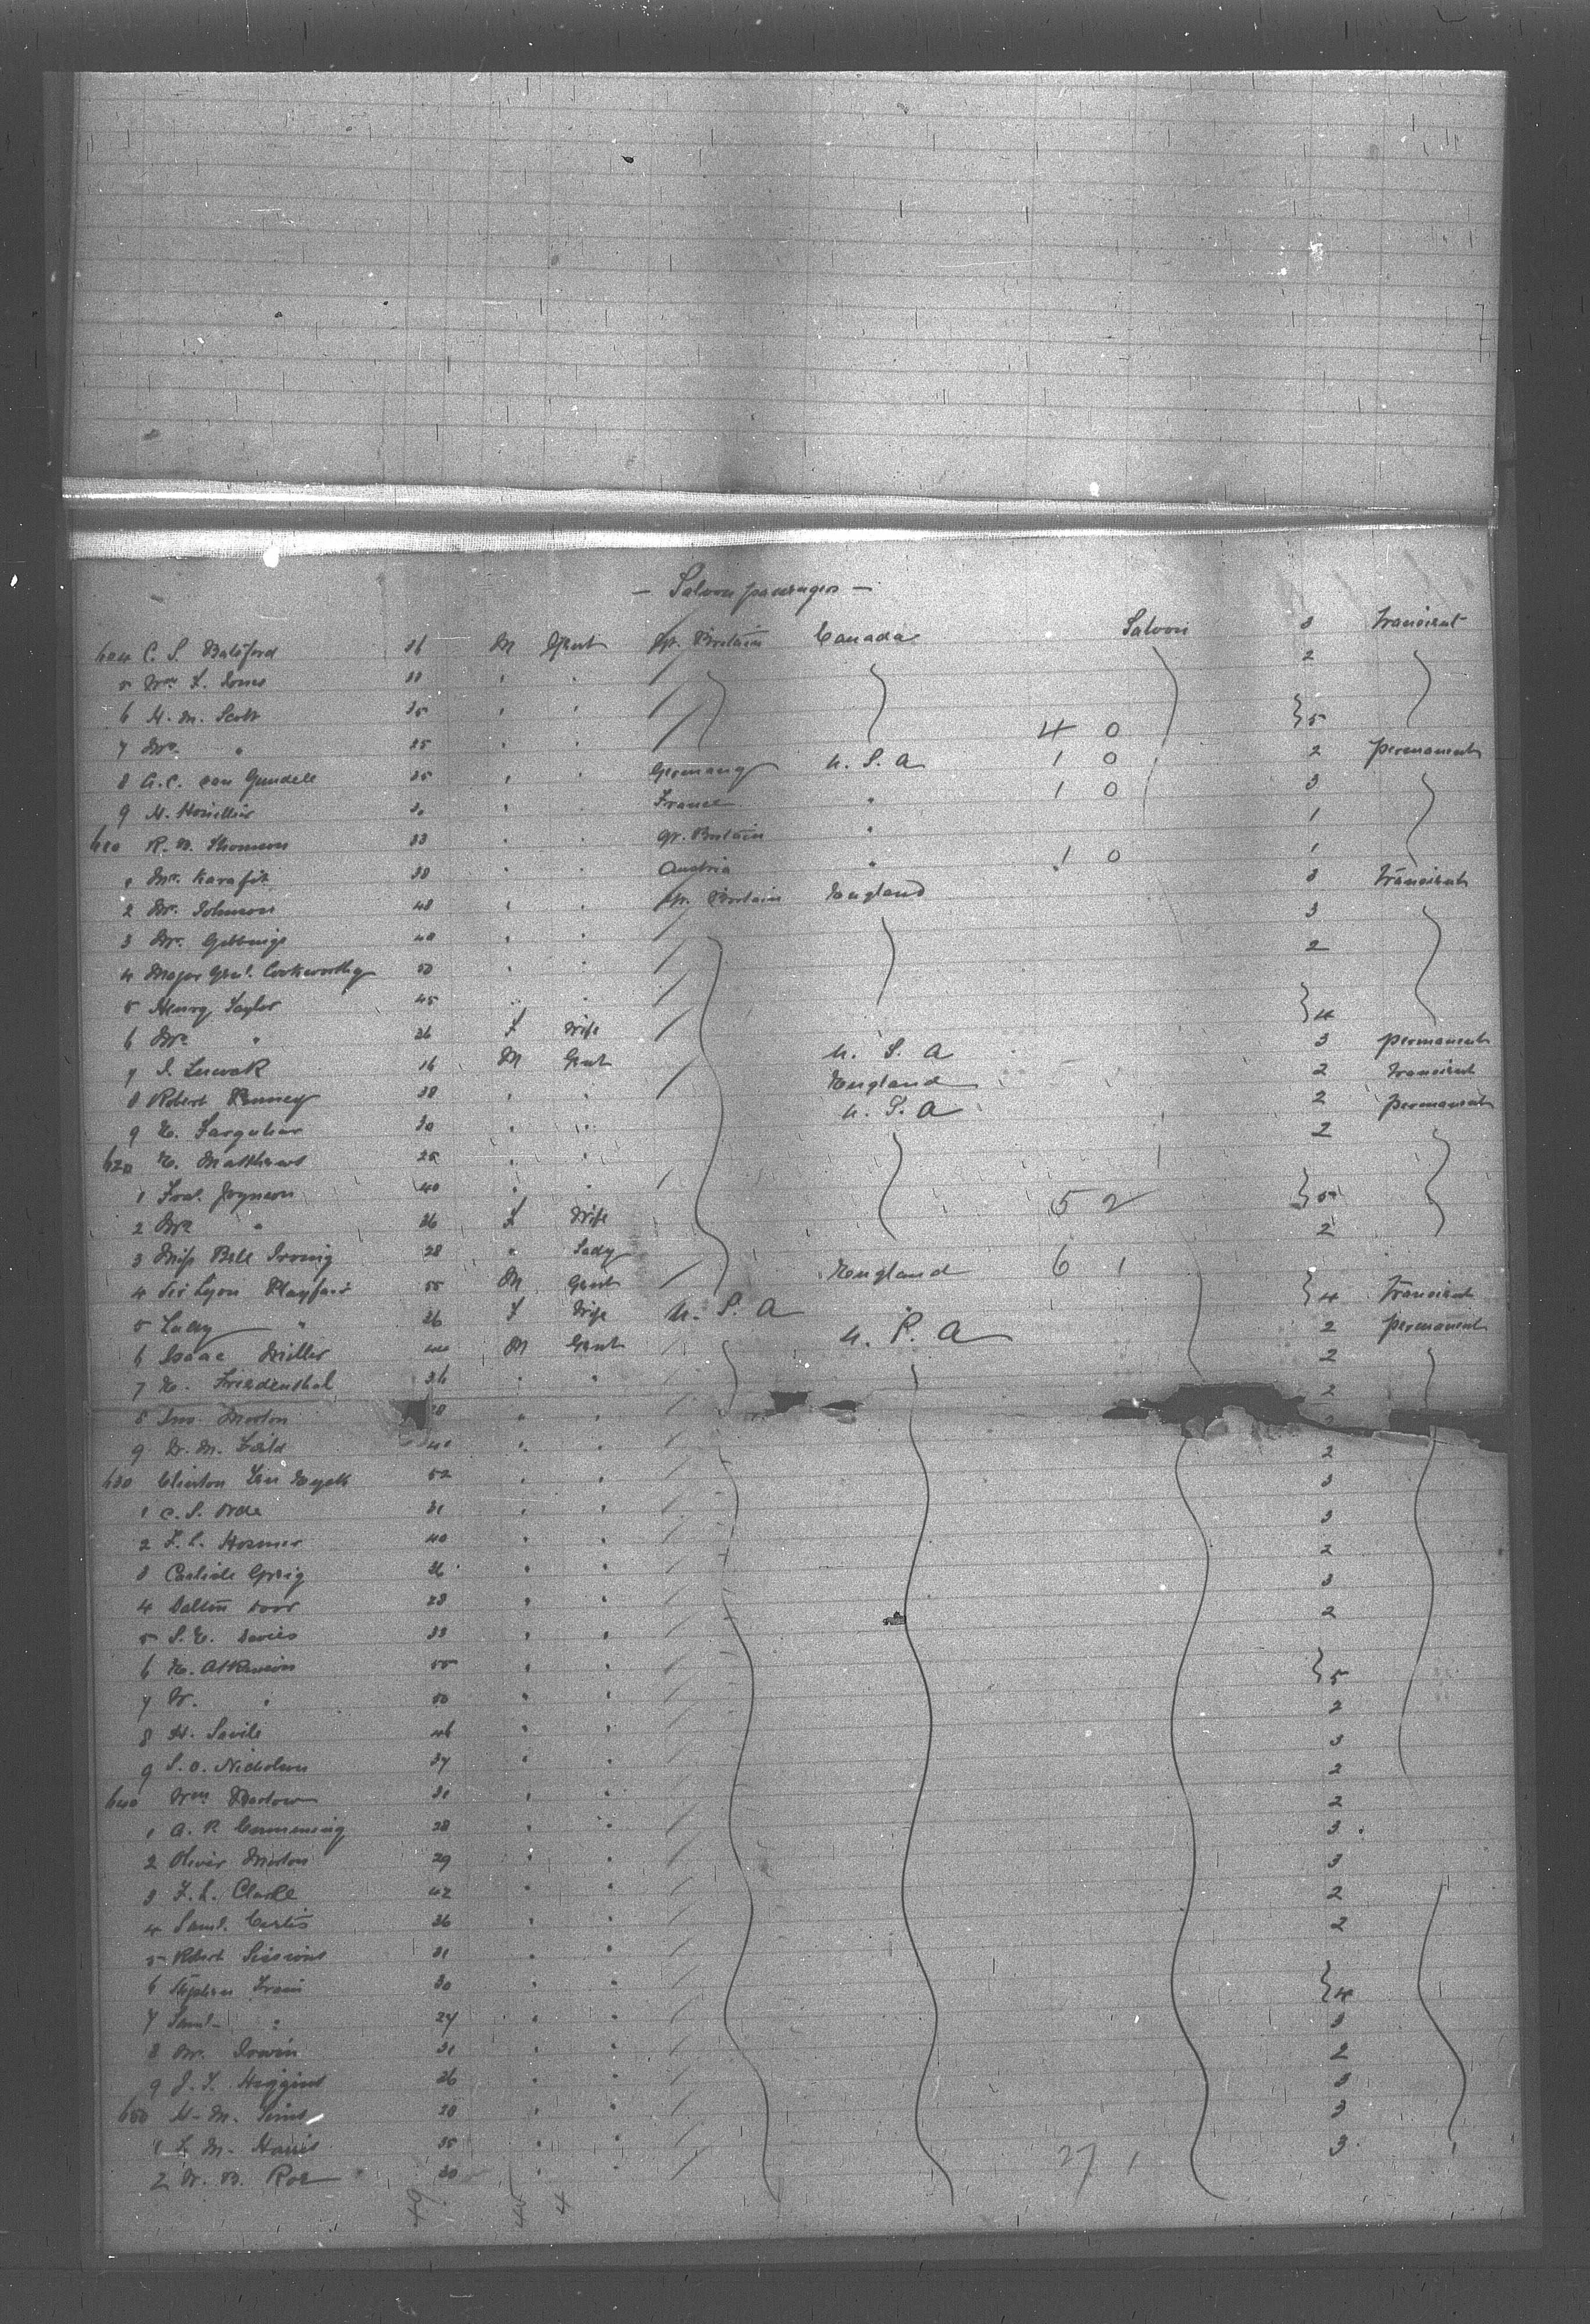 — Saloon passengers —
604 C. S. Batsford 36 M Gent Gr. Britain Canada Saloon 3 Transient
5 Wm L. Jones 33 " " 2
6 H. M. Scott 35 " "
7 Mrs " 25 " " 4 0 } 5
8 A. C. van Gundell 35 " " Germany U. S. A 1 0 2 permanent
9 H. 30 " " France " 1 0 3
610 R. B. Thomson 33 " " Gr. Britain " 1
1 Mr. Karafit 38 " " Austria " 1 0 1
2 Mr. Johnson 48 " " Gr. Britain England 3 Transient
3 Mr. Gibbings 40 " " 3
4 Major Genl. Cookworthy 50 " " 2
5 Henry Taylor 45 " "
6 Mrs " 26 F Wife } 4
7 16 M Gent U. S. A 3 permanent
8 Robert 38 " " England 2 Transient
9 E. Farquhar 30 " " U. S. A 2 permanent
620 E. Matthews 25 " " 2
1 Joynson 40 " "
2 Mrs " 26 F Wife 5 2 } 5
3 Miss Bell Irving 28 " Lady 2
4 Sir Lyon Playfair 55 M Gent England 6 1
5 Lady " 26 F Wife U. S. A } 4 Transient
6 Isaac Miller M Gent U. S. A 2 permanent
7 E. Friedenthal 36 " " 2
8 Jno. Morton " " 2
9 W. M. " " 2
630 Clinton Ten Eyck 52 " " 2
1 C. S. Orde 31 " " 3
2 F. L. Hosmer 40 " " 3
3 Carlisle 36 " " 2
4 Dalton Door 28 " " 3
5 S. E. Davies 33 " " 2
6 E. Atkinson 55 " "
7 W. " 50 " " } 5
8 H. Savile 46 " " 2
9 S. O. Nicholson 37 " " 3
640 Wm Barlow 31 " " 2
1 A. P. Cumming 28 " " 2
2 Oliver 29 " " 3
3 F. L. Clarke 42 " " 3
4 Saml. Curtis 36 " " 2
5 Robert Sessions 31 " " 2
6 Stephen 30 " "
7 Saml. " 24 " " } 4
8 Mr. Irwin 31 " " 3
9 J. T. Higgins 26 " " 2
650 H. M. Sims 28 " " 3
1 F. M. Harris 35 " " 3
2 W. B. Roe 30 " " 27 1 3